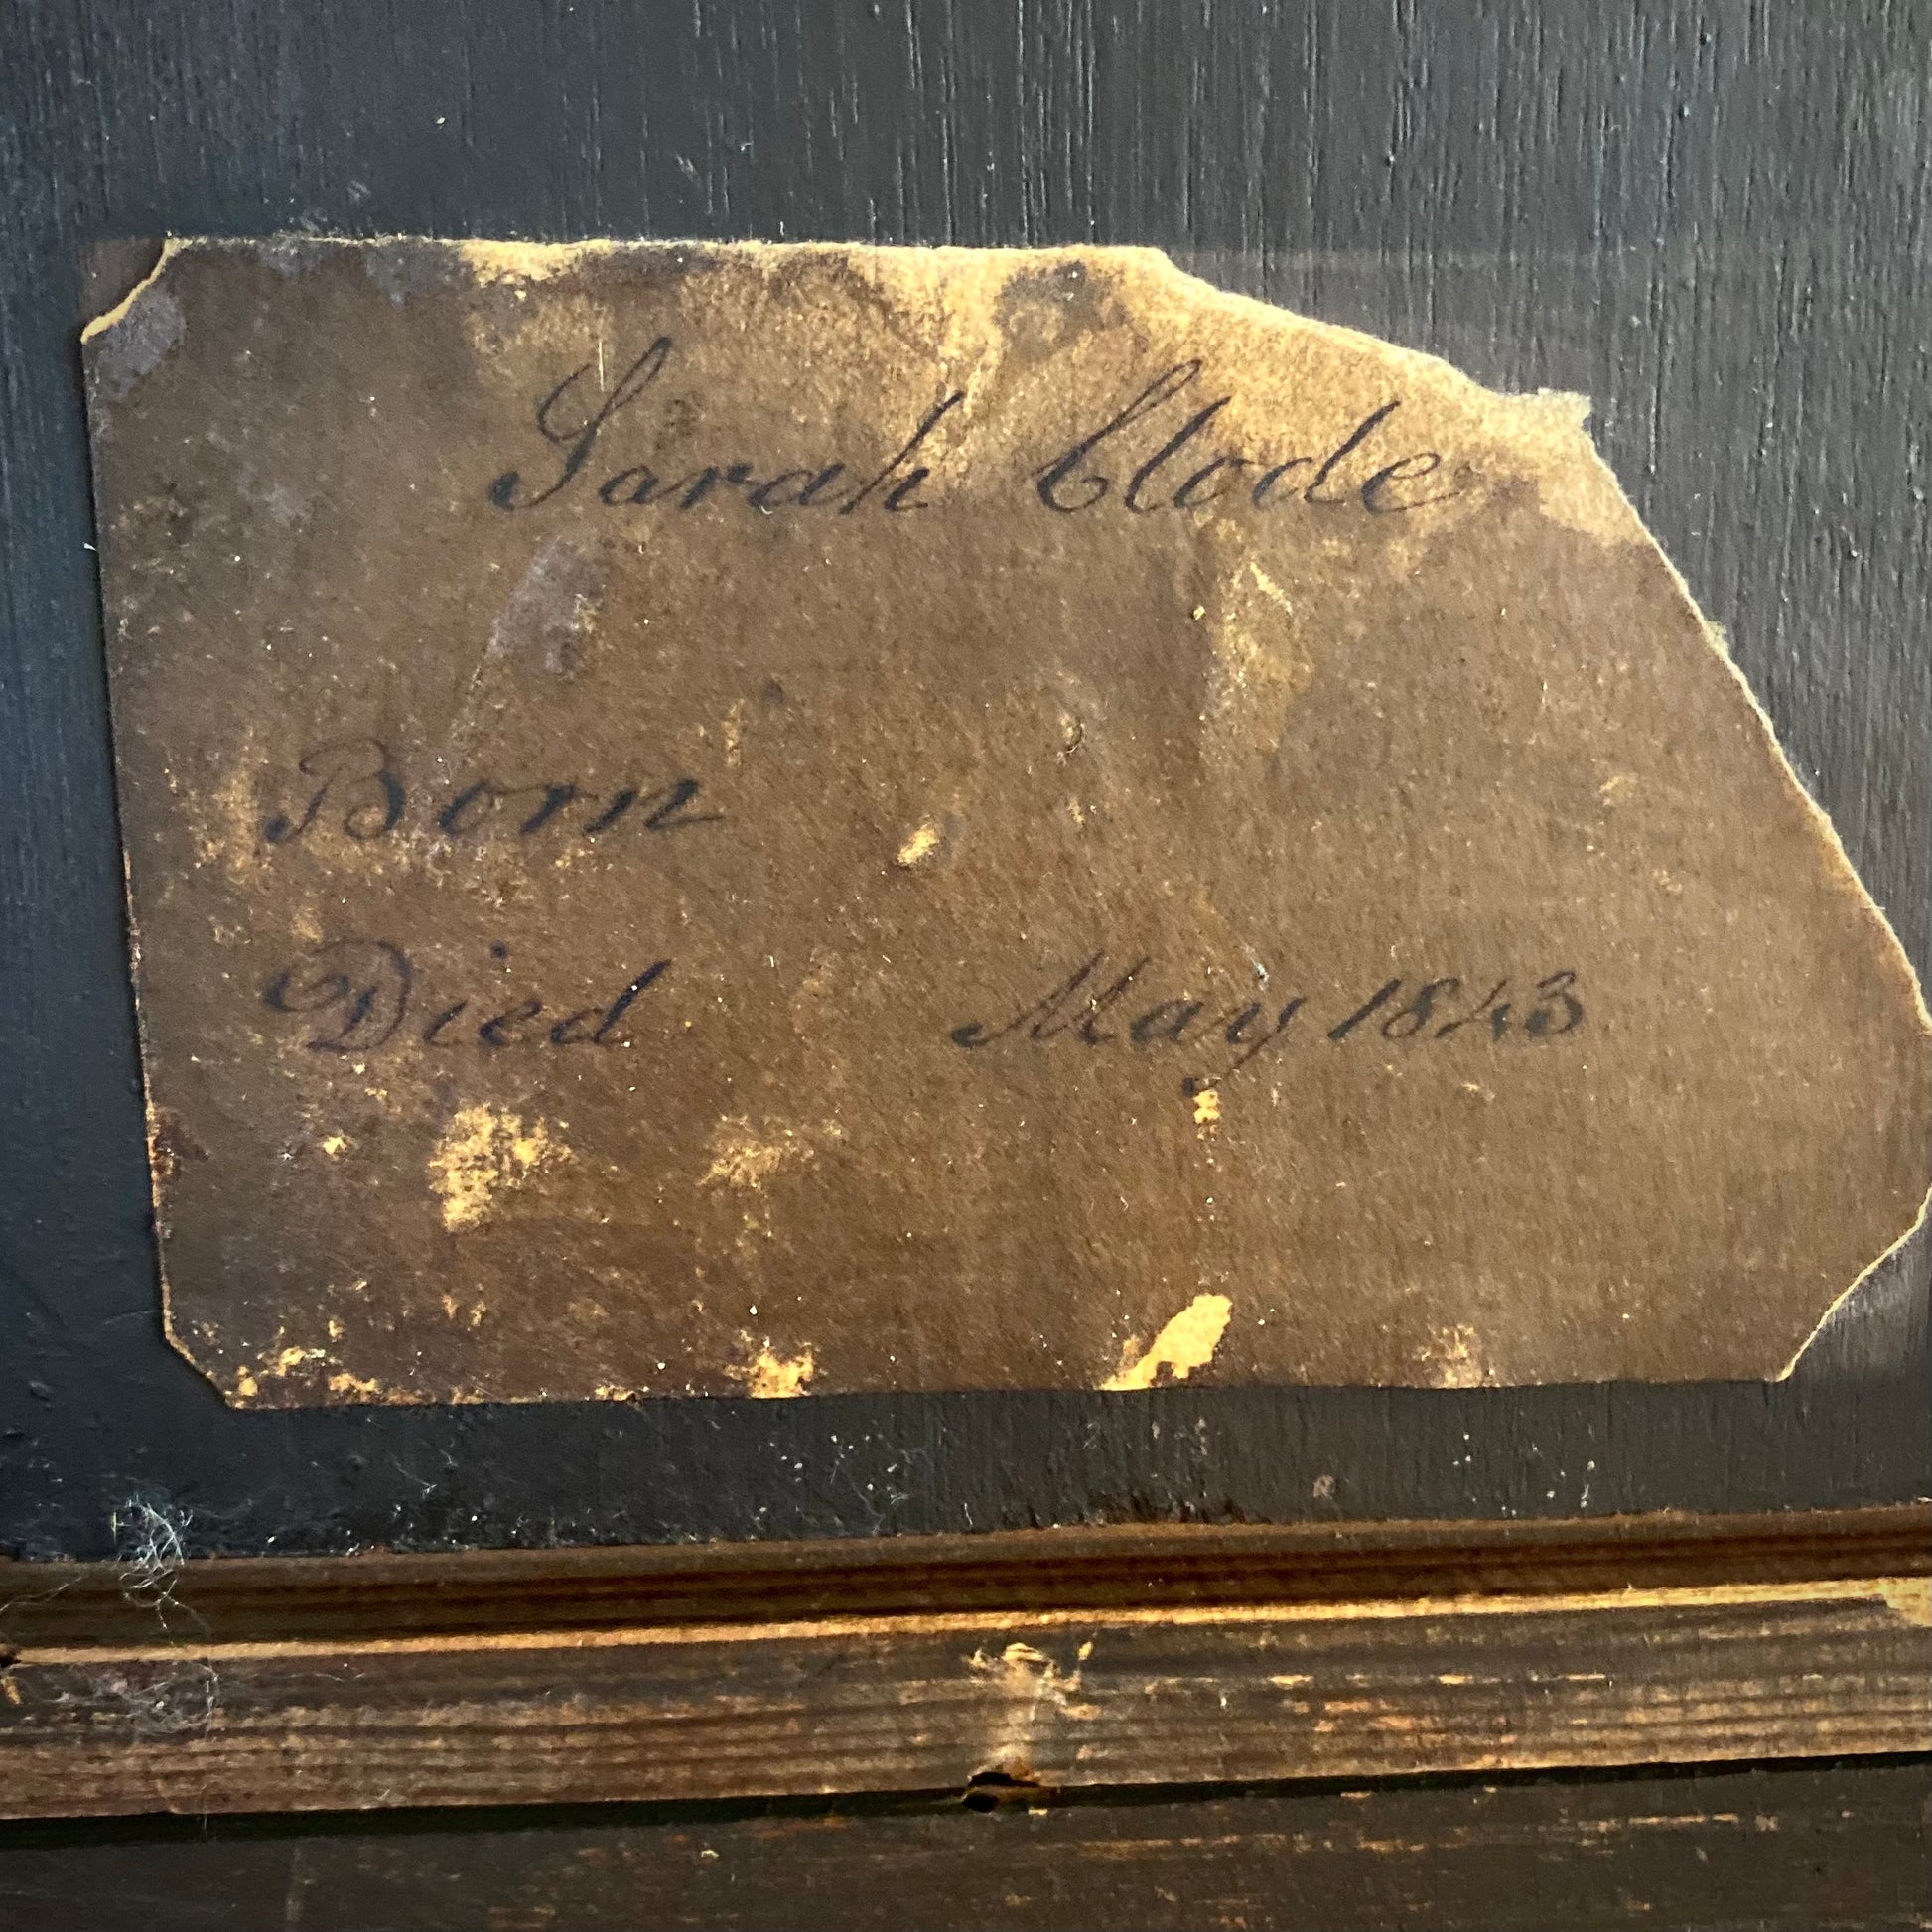 Sarah Clode
Born
Died May 1843